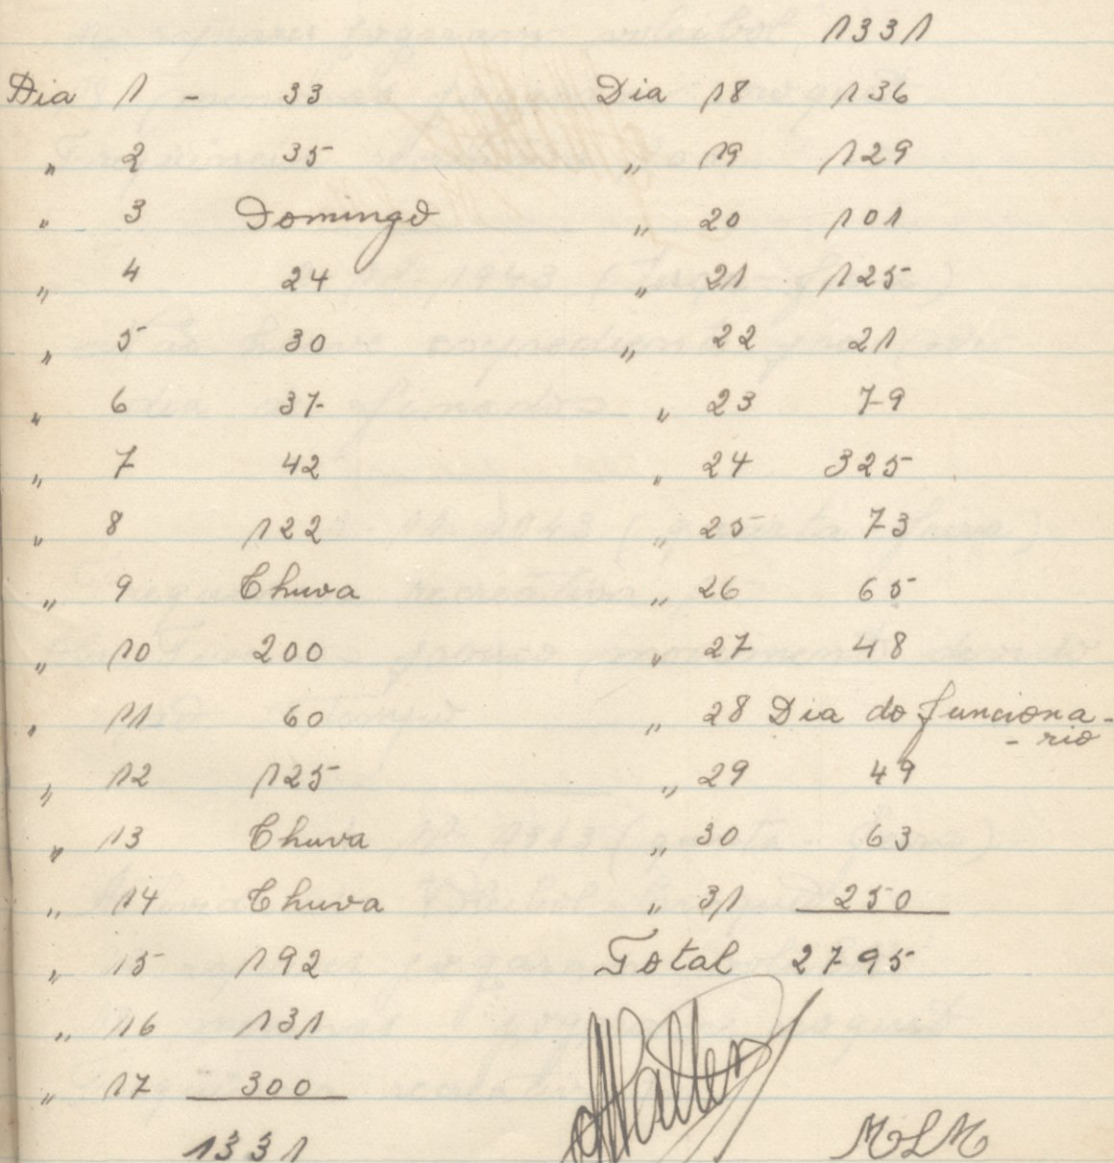 Dia 1 - 33
" 2 35
" 3 Domingo
" 4 24
" 5 30
" 6 37
" 7 42
" 8 122
" 9 Chuva
" 10 200
" 11 60
" 12 125
" 13 Chuva
" 14 Chuva
" 15 192
" 16 131
" 17 300
1331
1331
Dia 18 136
" 19 129
" 20 101
" 21 125
" 22 21
" 23 79
" 24 325
" 25 73
" 26 65
" 27 48
" 28 Dia do funciona-
-rio
" 29 49
" 30 63
" 31 250
Total 2795
MLM